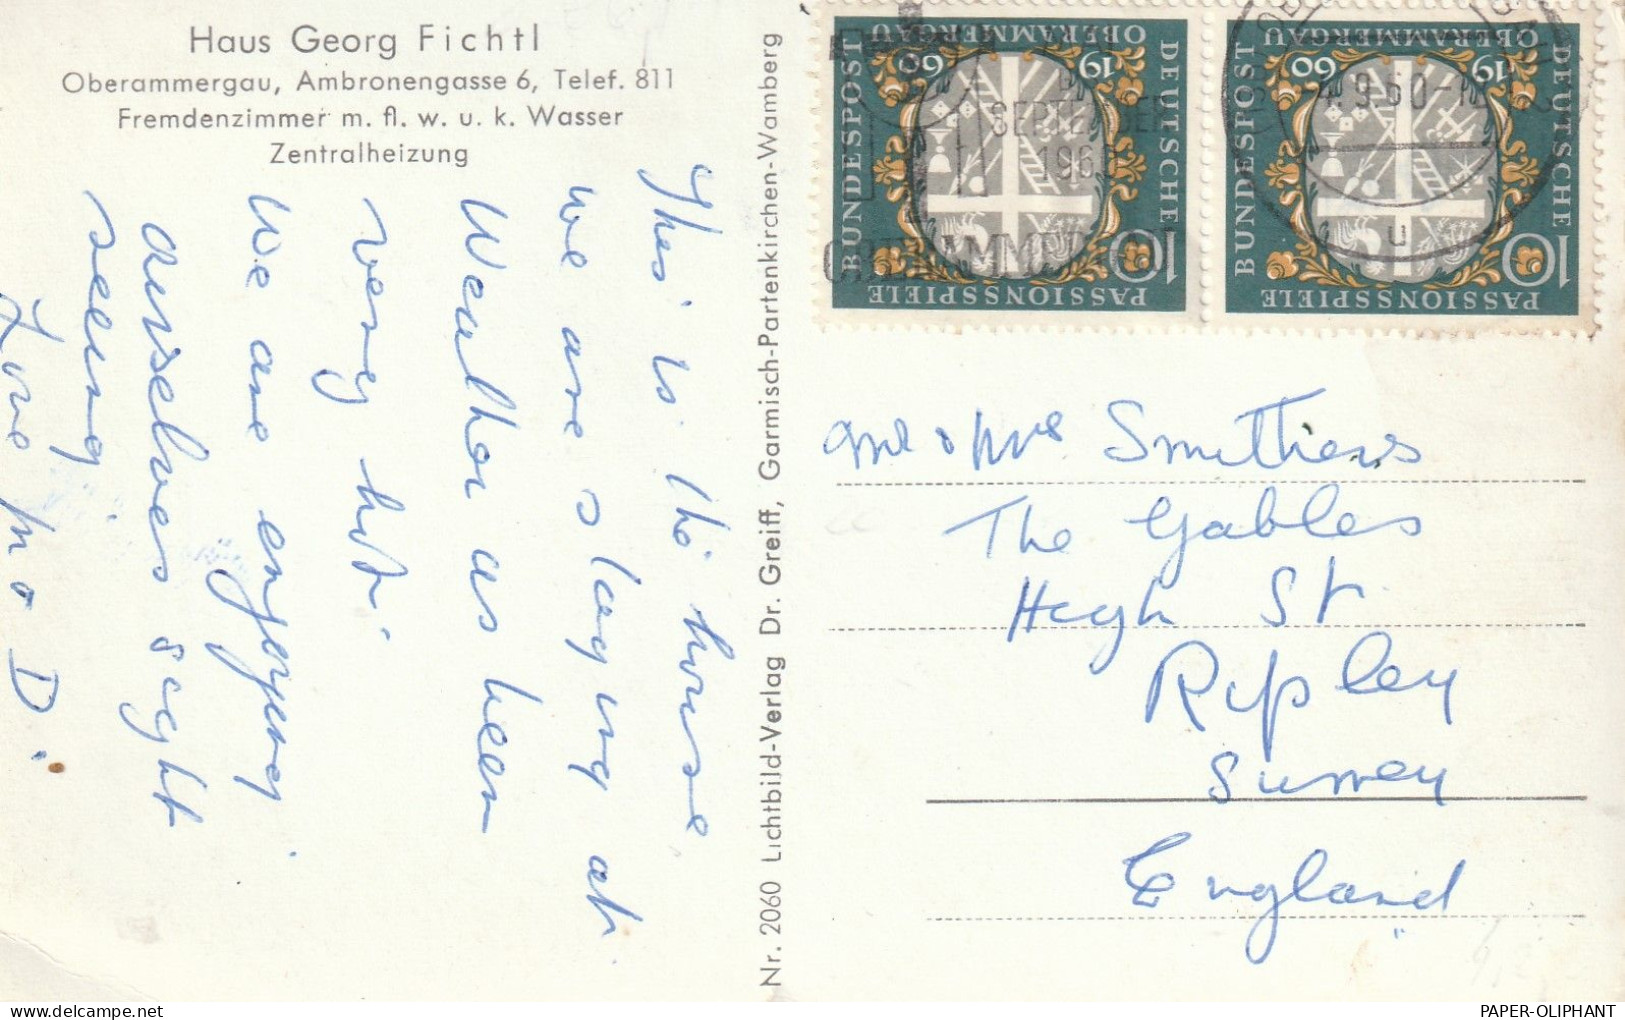 Haus Georg Fichtl
Oberammergau, Ambronengasse 6, Telef. 811
Fremdenzimmer m. fl. w. u. k. Wasser
Zentralheizung
This is the house
we are staying at.
Weather as been
very hot.
We are enjoying
ourselves sight
seeing
Love M & D.
Nr. 2060 Lichtbild-Verlag Dr. Greiff, Garmisch-Partenkirchen-Wamberg
DEUTSCHE
BUNDESPOST
PASSIONSSPIELE
OBERAMMERGAU
19 60
10
DEUTSCHE
BUNDESPOST
PASSIONSSPIELE
OBERAMMERGAU
19 60
10
SEPTEMBER
196
OBERAMMERGAU
.9.60-1
u
Mr & Mrs Smithers
The Gables
High St
Ripley
Surrey
England
PAPER-OLIPHANT